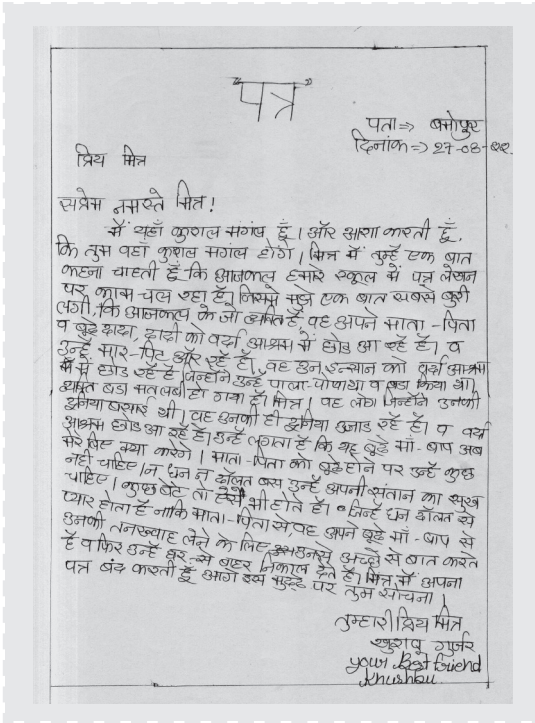 "पत्र"
पता⇒ बमोपुर
दिनांक⇒ 27-08-22.
प्रिय मित्र
सप्रेम नमस्ते मित्र!
मैं यहाँ कुशल मगंल हूँ। और आशा करती हूँ,
कि तुम वहाँ कुशल मगंल होगे। मित्र मैं तुम्हें एक बात
कहना चाहती हूँ कि आजकल हमारे स्कूल में पत्र लेखन
पर काम चल रहा है, जिसमें मुझे एक बात सबसे बुरी
लगी, कि आजकल के जो व्यक्ति है, वह अपने माता-पिता
व बुढे दादा, दादी को वर्द्धा आश्रम में छोड आ रहे है। व
उन्हें मार-पिट और रहे है। वह उन इन्सान को वर्द्धा आश्रम
में छोड रहे है जिन्होंने उन्हें पाला-पोषा था व बडा किया थी।
बडा मतलबी हो गया है। मित्र। वह लोग जिन्होंने उनकी
दुनिया बसाई थी। वह उनकी ही दुनिया उजाड रहे है। व वर्द्धा
आश्रम छोड आ रहे है। उन्हें लगता है कि यह बुढे माँ-बाप अब
मेरे लिए क्या करेगे। माता-पिता को बुढे होने पर उन्हें कुछ
नही चाहिए। न धन न दौलत बस उन्हें अपनी संतान का सुख
चाहिए। कुछ बेटे तो ऐसे भी होते है। जिन्हें धन दौलत से
प्यार होता है नाकि माता-पिता से, वह अपने बुढे माँ-बाप से
उनकी तनख्वाह लेने के लिए उनसे अच्छे से बात करते
है व फिर उन्हें घर से बाहर निकाल देते है। मित्र मैं अपना
पत्र बंद करती हूँ आगे इस मुद्दे पर तुम सोचना।
तुम्हारी प्रिय मित्र
खुशबू गुर्जर
your Best friend
Khushbu.